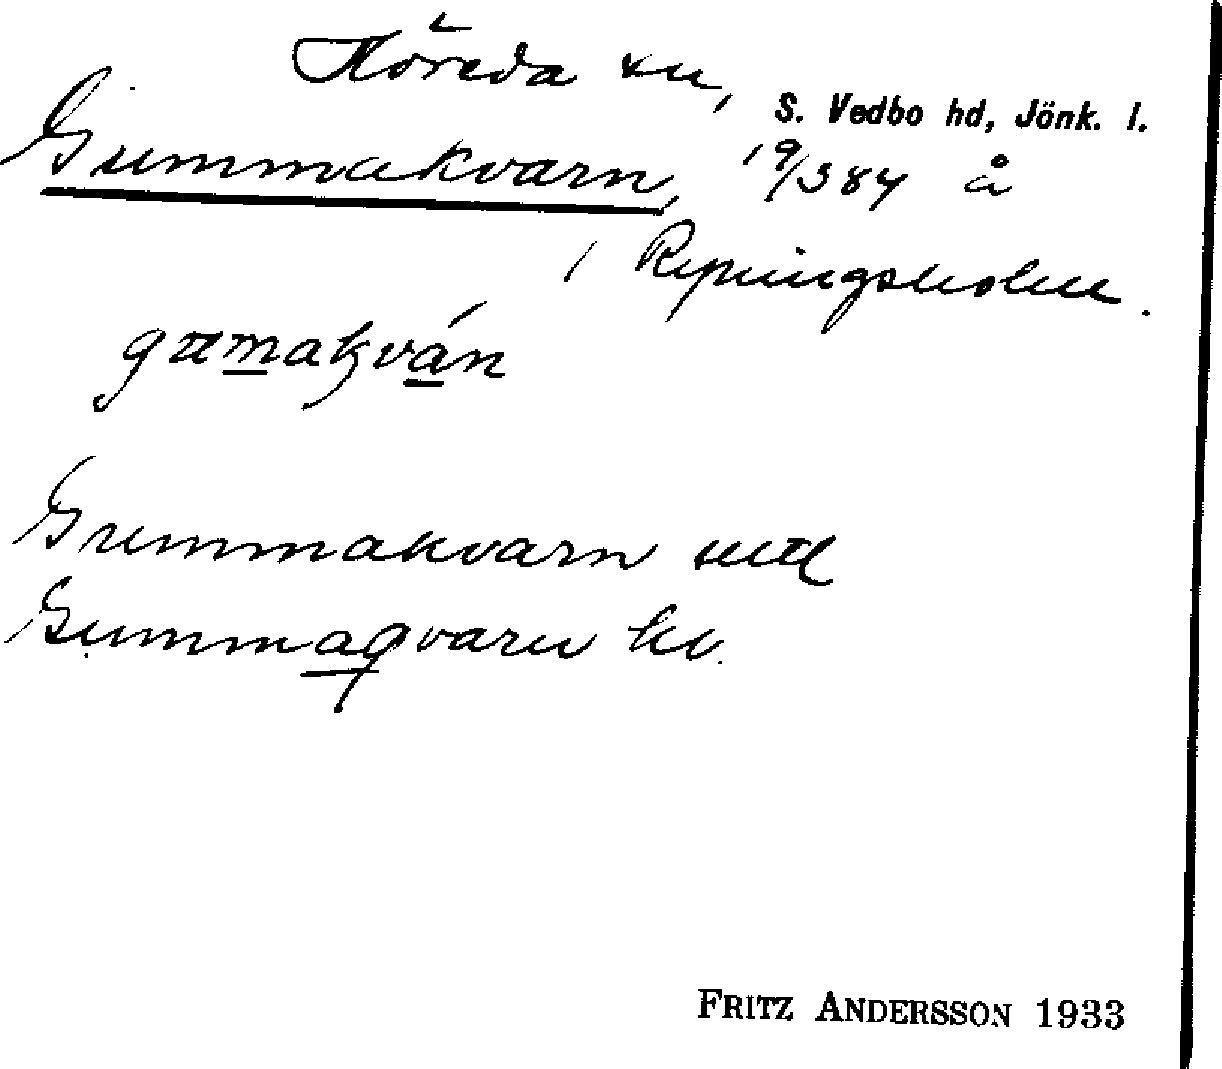 Höreda sn,
S. Vedbo hd, Jönk. l.
Gummakvarn, 19/384 å
/ Repningsholm.
gummakván
Gummakvarn uttl
Gummaqvarn hv.
FRITZ ANDERSSON 1933